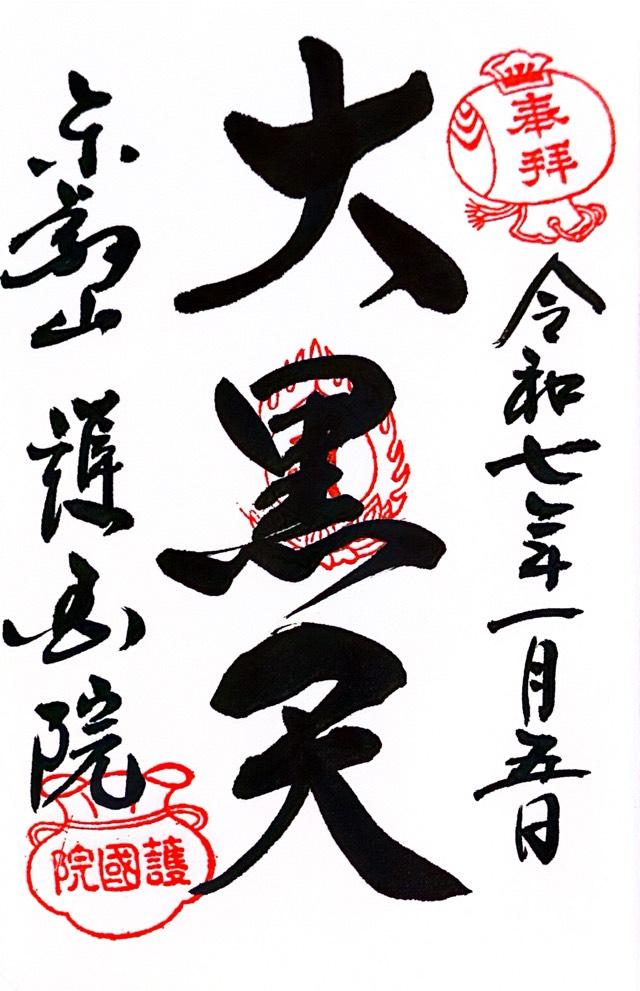 奉拝
令和七年一月五日
大黒天
東叡山 護国院
護國院